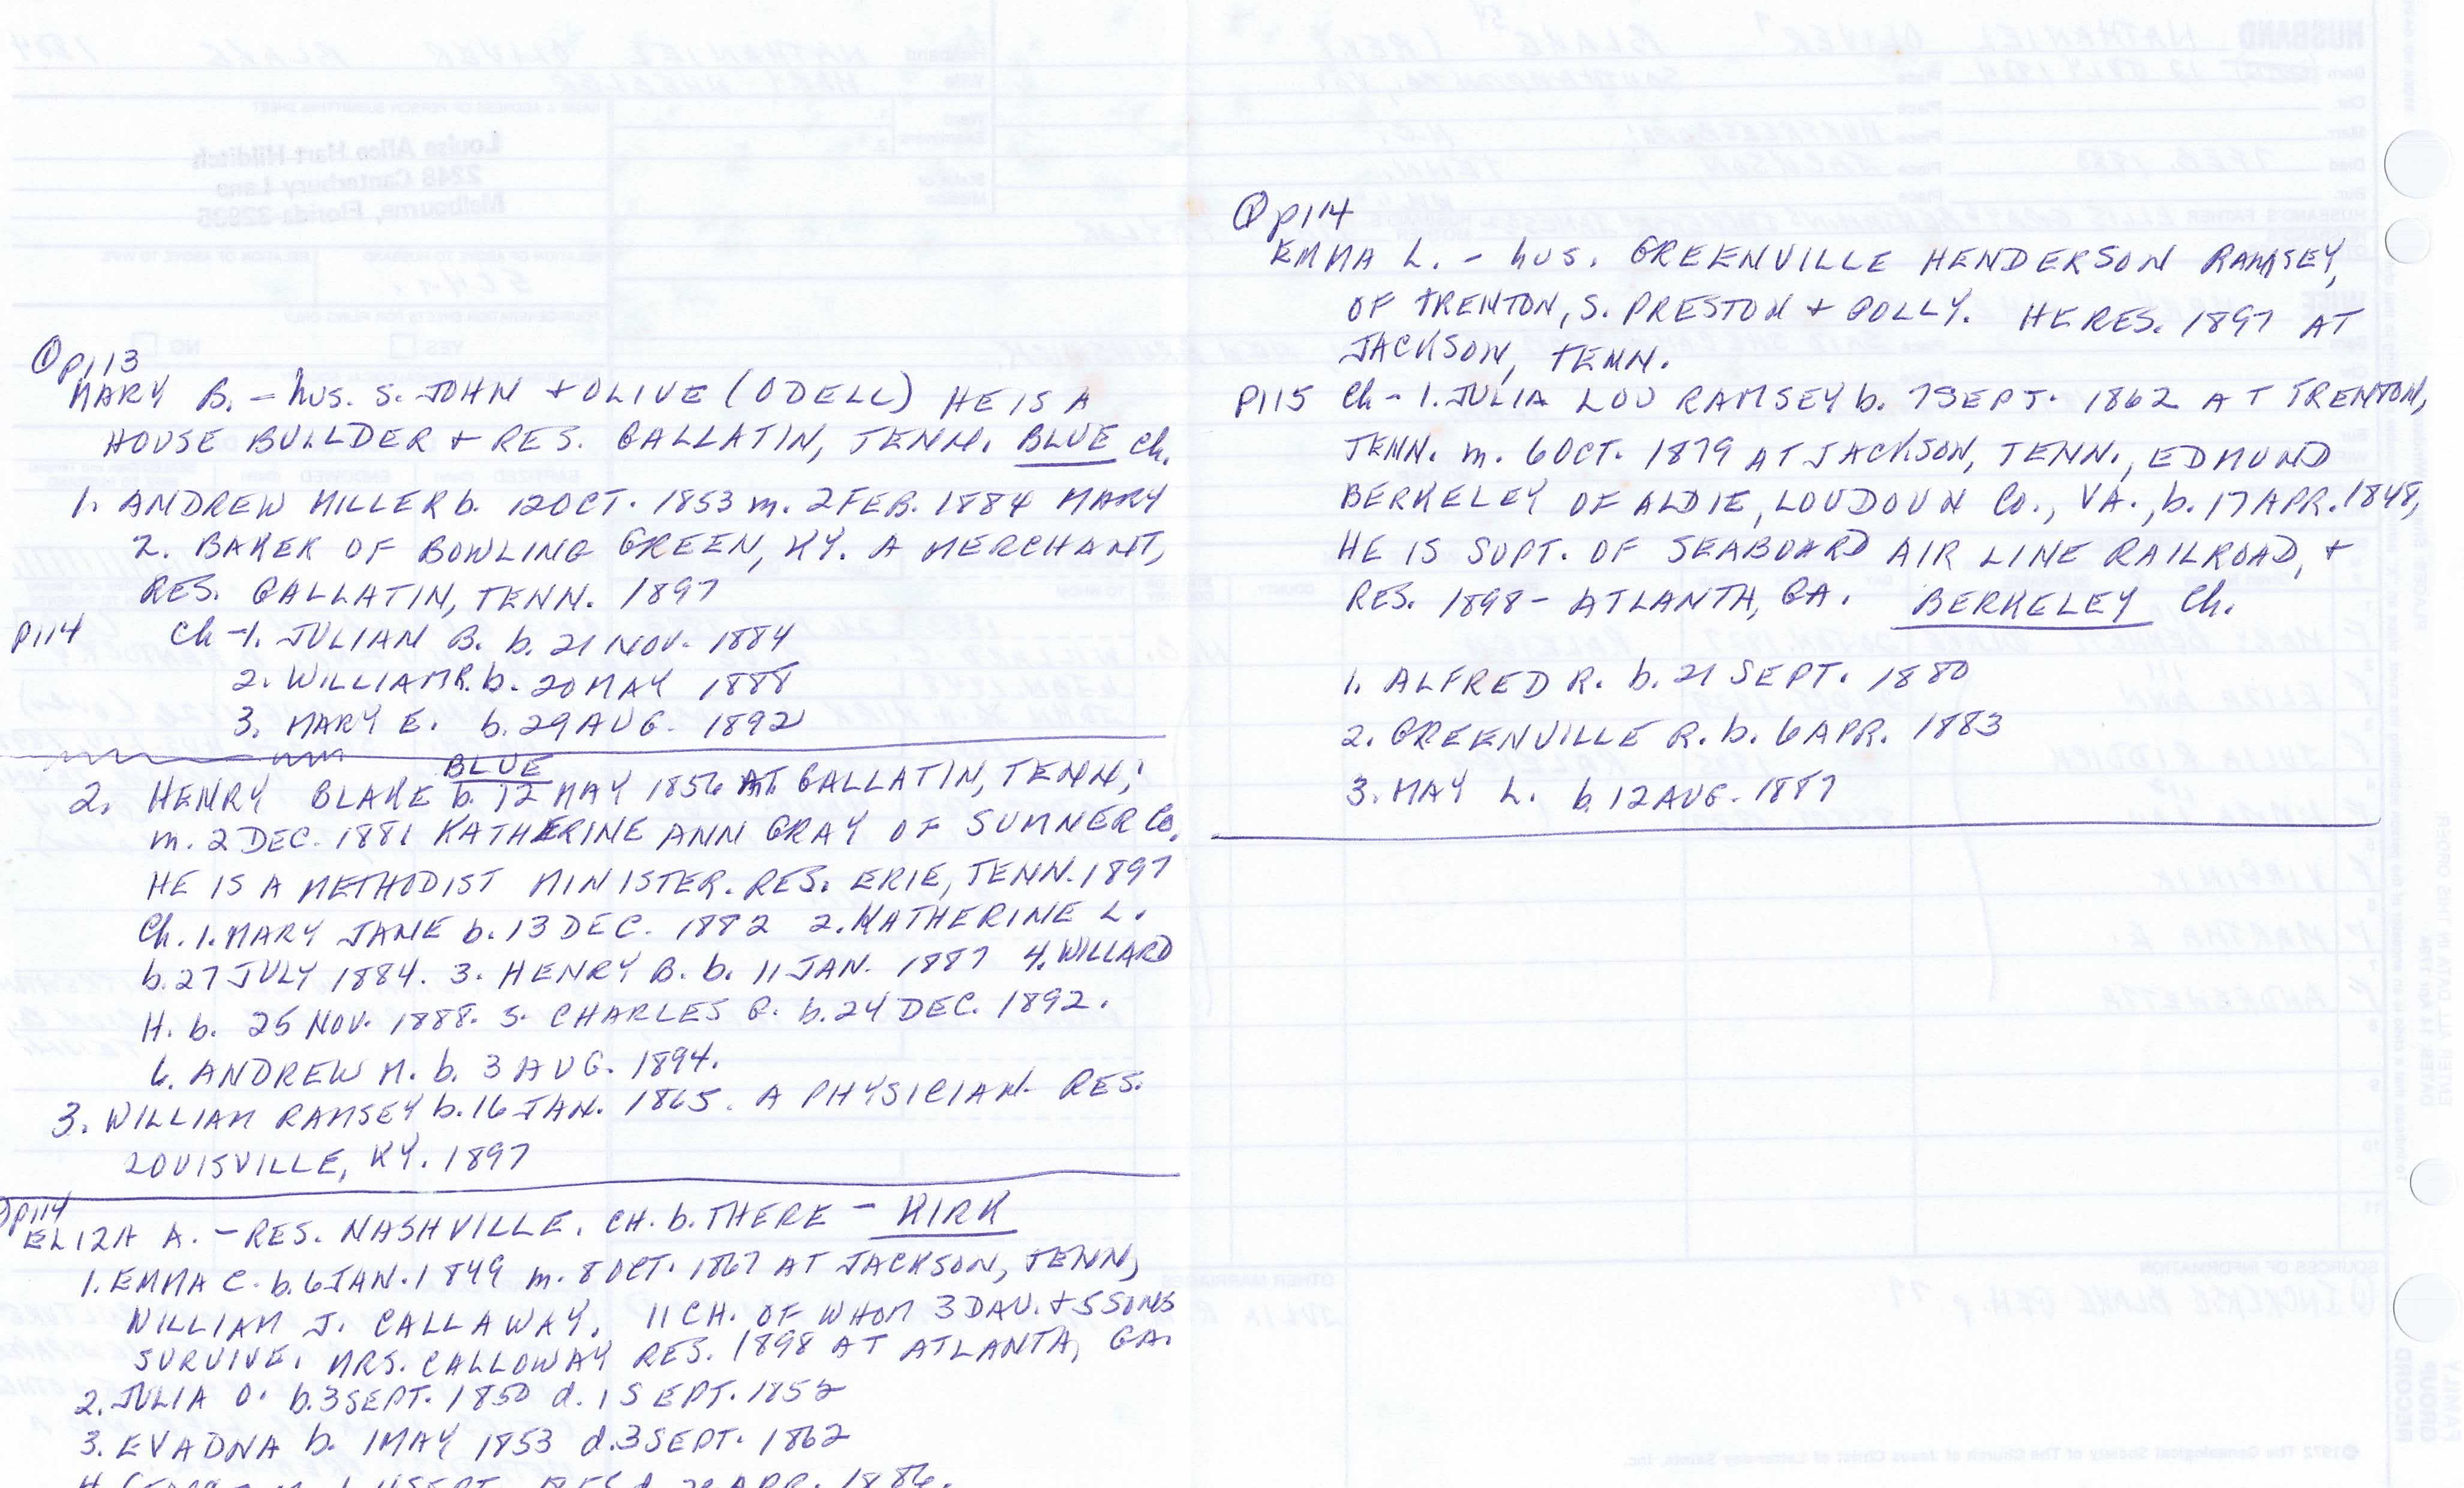 ① p113
MARY B. - hus. S. JOHN + OLIVE (ODELL) HE IS A
HOUSE BUILDER + RES. GALLATIN, TENN. BLUE Ch.
1. ANDREW MILLER b. 12 OCT. 1853 m. 2 FEB. 1884 MARY
2. BAKER OF BOWLING GREEN, KY. A MERCHANT,
RES. GALLATIN, TENN. 1897
P114 Ch -1. JULIAN B. b. 21 NOV. 1884
2. WILLIAM R. b. 20 MAY 1888
3. MARY E. b. 29 AUG. 1892
BLUE
2. HENRY BLAKE b. 12 MAY 1856 AT GALLATIN, TENN;
m. 2 DEC. 1881 KATHERINE ANN GRAY OF SUMNER Co.
HE IS A METHODIST MINISTER. RES. ERIE, TENN. 1897
Ch. 1. MARY JANE b. 13 DEC. 1882 2. KATHERINE L.
b. 27 JULY 1884. 3. HENRY B. b. 11 JAN. 1887 4. WILLARD
H. b. 25 NOV. 1888. 5. CHARLES G. b. 24 DEC. 1892.
6. ANDREW M. b. 3 AUG. 1894.
3. WILLIAM RAMSEY b. 16 JAN. 1865. A PHYSICIAN- RES.
LOUISVILLE, KY. 1897
p114
ELIZA A. - RES. NASHVILLE. CH. b. THERE - KIRK
1. EMMA C. b. 6 JAN. 1849 m. 8 OCT. 1867 AT JACKSON, TENN,
WILLIAM J. CALLAWAY. 11 CH. OF WHOM 3 DAU. + 5 SONS
SURVIVE. MRS. CALLOWAY RES. 1898 AT ATLANTA, GA.
2. JULIA O. b. 3 SEPT. 1850 d. 1 SEPT. 1852
3. EVADNA b. 1 MAY 1853 d. 3 SEPT. 1862
① p114
EMMA L. - hus. GREENVILLE HENDERSON RAMSEY,
OF TRENTON, S. PRESTON + POLLY. HE RES. 1897 AT
JACKSON, TENN.
P115 Ch - 1. JULIA LOU RAMSEY b. 7 SEPT. 1862 AT TRENTON,
TENN. m. 6 OCT. 1879 AT JACKSON, TENN., EDMUND
BERKELEY OF ALDIE, LOUDOUN Co., VA., b. 17 APR. 1848,
HE IS SUPT. OF SEABOARD AIR LINE RAILROAD, +
RES. 1898 - ATLANTA, GA. BERKELEY Ch.
1. ALFRED R. b. 21 SEPT. 1880
2. GREENVILLE R. b. 6 APR. 1883
3. MAY L. b 12 AUG. 1887